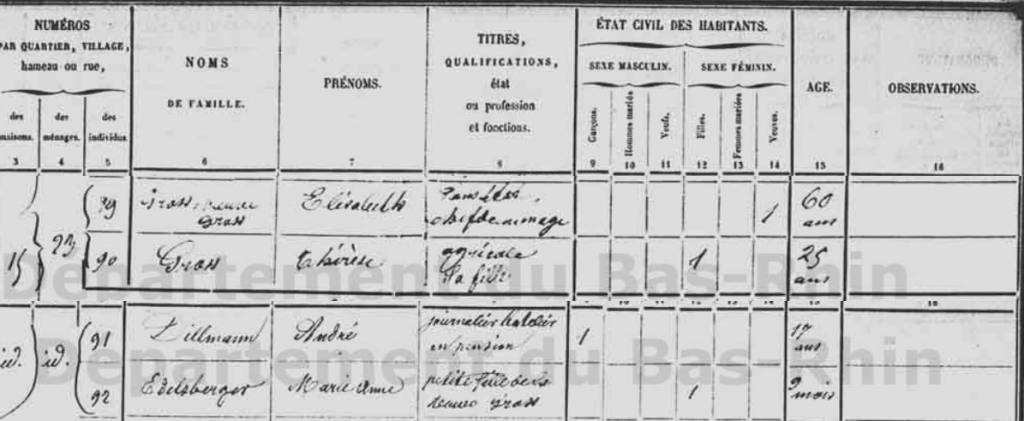 NUMÉROS
PAR QUARTIER, VILLAGE,
hameau ou rue,
des maisons. des ménages. des individus
NOMS
DE FAMILLE.
PRÉNOMS.
TITRES,
QUALIFICATIONS,
état
ou profession
et fonctions.
ÉTAT CIVIL DES HABITANTS.
SEXE MASCULIN. SEXE FÉMININ.
Garçons. Hommes mariés Veufs. Filles. Femmes mariées Veuves.
AGE.
OBSERVATIONS.
3 4 5 6 7 8 9 10 11 12 13 14 15 16
89 veuve Elisabeth 1 60
Gross chef de menage ans
15 23 90 Gross thérèse agricole 1 25
sa fille ans
id. id. 91 Dillmann André journalier 1 17
en pension ans
92 Edelsberger Marie anne petite fille de la 1 9
Gross mois
Département du Bas-Rhin
Département du Bas-Rhin